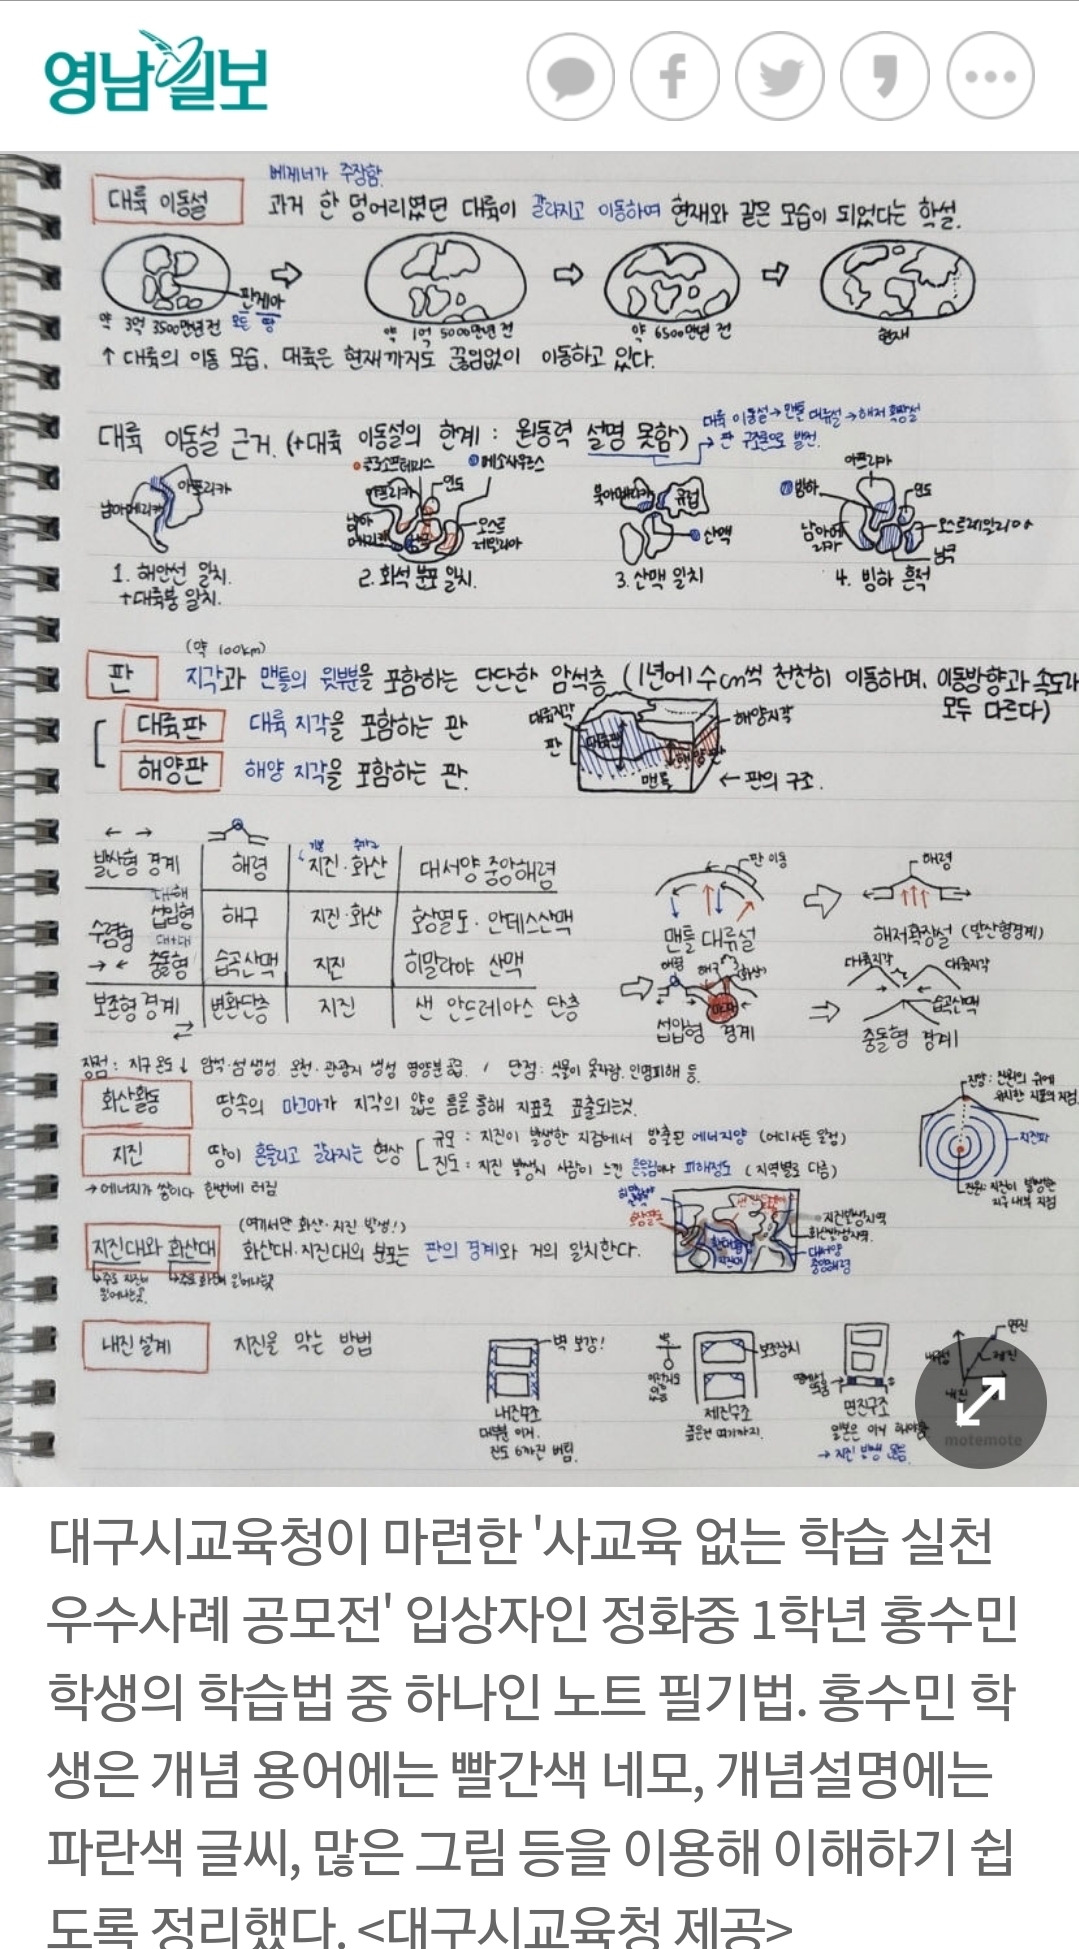 영남일보
베게너가 주장함.
대륙 이동설
과거 한 덩어리였던 대륙이 갈라지고 이동하여 현재와 같은 모습이 되었다는 학설.
판게아
모든 땅
약 3억 3500만년 전
약 1억 5000만년 전
약 6500만년 전
현재
↑ 대륙의 이동 모습. 대륙은 현재까지도 끊임없이 이동하고 있다.
대륙 이동설 → 맨틀 대류설 → 해저 확장설
→ 판 구조론으로 발전.
대륙 이동설 근거. (+대륙 이동설의 한계 : 원동력 설명 못함)
글로소프테리스
메소사우르스
아프리카
남아메리카
아프리카
인도
남아메리카
오스트레일리아
북아메리카
유럽
산맥
아프리카
빙하
인도
남아메리카
오스트레일리아
남극
1. 해안선 일치.
+대륙붕 일치.
2. 화석 분포 일치.
3. 산맥 일치
4. 빙하 흔적
(약 100km)
판
지각과 맨틀의 윗부분을 포함하는 단단한 암석층 (1년에 수cm씩 천천히 이동하며, 이동방향과 속도가
모두 다르다)
대륙판
대륙 지각을 포함하는 판
해양판
해양 지각을 포함하는 판.
대륙지각
해양지각
판
대륙판
해양판
맨틀
← 판의 구조.
← →
발산형 경계
해령
지진·화산
대서양 중앙해령
수렴형
→ ←
섭입형
해구
지진·화산
호상열도·안데스산맥
대+대
충돌형
습곡산맥
지진
히말라야 산맥
보존형 경계
변환단층
지진
샌 안드레아스 단층
판 이동
맨틀 대류설
해령
해저확장설 (발산형경계)
해령
해구
섭입형 경계
대륙지각
대륙지각
습곡산맥
충돌형 경계
장점 : 지구 온도↓ 암석·섬 생성. 온천·관광지 생성 영양분 공급. / 단점 : 식물이 못자람. 인명피해 등.
화산활동
땅속의 마그마가 지각의 얇은 틈을 통해 지표로 표출되는것.
지진
땅이 흔들리고 갈라지는 현상
규모 : 지진이 발생한 지점에서 방출된 에너지양 (어디서든 일정)
진도 : 지진 발생시 사람이 느낀 흔들림이나 피해정도 (지역별로 다름)
→ 에너지가 쌓이다 한번에 터짐
진앙 : 진원의 위에
위치한 지표의 지점
지진파
진원 : 지진이 발생한
지구 내부 지점
(여기서만 화산·지진 발생!)
지진대와 화산대
화산대·지진대의 분포는 판의 경계와 거의 일치한다.
호상열도
지진발생지역
화산발생지역
대서양
중앙해령
내진 설계
지진을 막는 방법
벽 보강!
내진구조
대부분 이거.
진도 6까진 버팀.
보조장치
제진구조
높은건 여기까지.
면진구조
일본은 이거
면진
제진
내진
motemote
대구시교육청이 마련한 '사교육 없는 학습 실천
우수사례 공모전' 입상자인 정화중 1학년 홍수민
학생의 학습법 중 하나인 노트 필기법. 홍수민 학
생은 개념 용어에는 빨간색 네모, 개념설명에는
파란색 글씨, 많은 그림 등을 이용해 이해하기 쉽
도록 정리했다. <대구시교육청 제공>